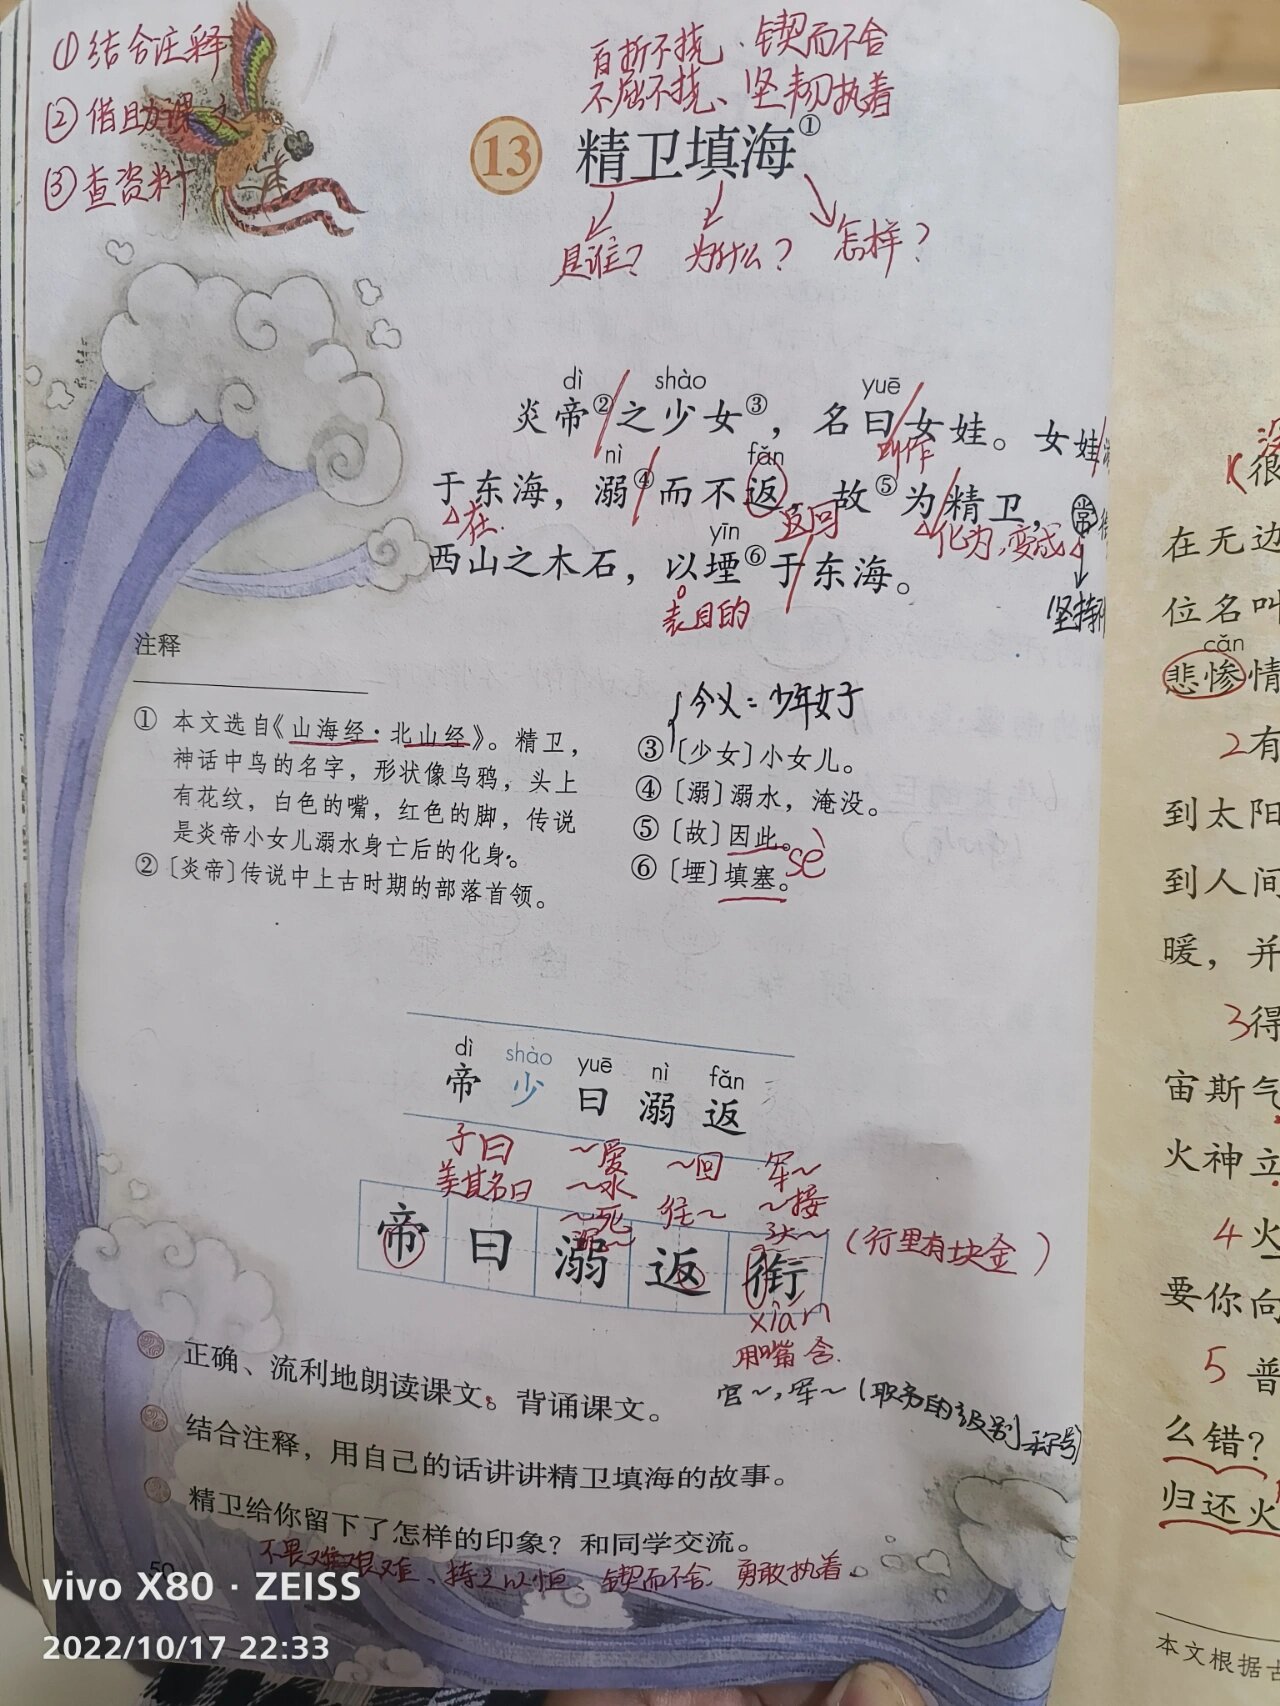 ①结合注释
②借助课文
③查资料
百折不挠、锲而不舍
不屈不挠、坚韧执着
13 精卫填海①
是谁？ 为什么？ 怎样？
dì shào yuē
炎帝②之少女③，名曰女娃。女娃
叫作
nì fǎn
于东海，溺④而不返，故⑤为精卫，常
在 返回 化为，变成
yīn
西山之木石，以堙⑥于东海。
表目的 坚持
注释
①本文选自《山海经·北山经》。精卫，
神话中鸟的名字，形状像乌鸦，头上
有花纹，白色的嘴，红色的脚，传说
是炎帝小女儿溺水身亡后的化身。
②〔炎帝〕传说中上古时期的部落首领。
今义：少年女子
③〔少女〕小女儿。
④〔溺〕溺水，淹没。
⑤〔故〕因此。
sè
⑥〔堙〕填塞。
dì shào yuē nì fǎn
帝 少 曰 溺 返
子曰 ～爱 ～回 军～
美其名曰 ～水 往～ ～接
～死 头～
帝 曰 溺 返 衔 （行里有块金）
xián
用嘴含.
官～，军～（职务的级别称号）
正确、流利地朗读课文。背诵课文。
结合注释，用自己的话讲讲精卫填海的故事。
精卫给你留下了怎样的印象？和同学交流。
不畏艰难、持之以恒、锲而不舍、勇敢执着。
50
vivo X80 · ZEISS
2022/10/17 22:33
很
在无边
位名叫
cǎn
悲惨情
2有
到太阳
到人间
暖，并
3得
宙斯气
火神立
4火
要你向
5普
么错？
归还火
本文根据古